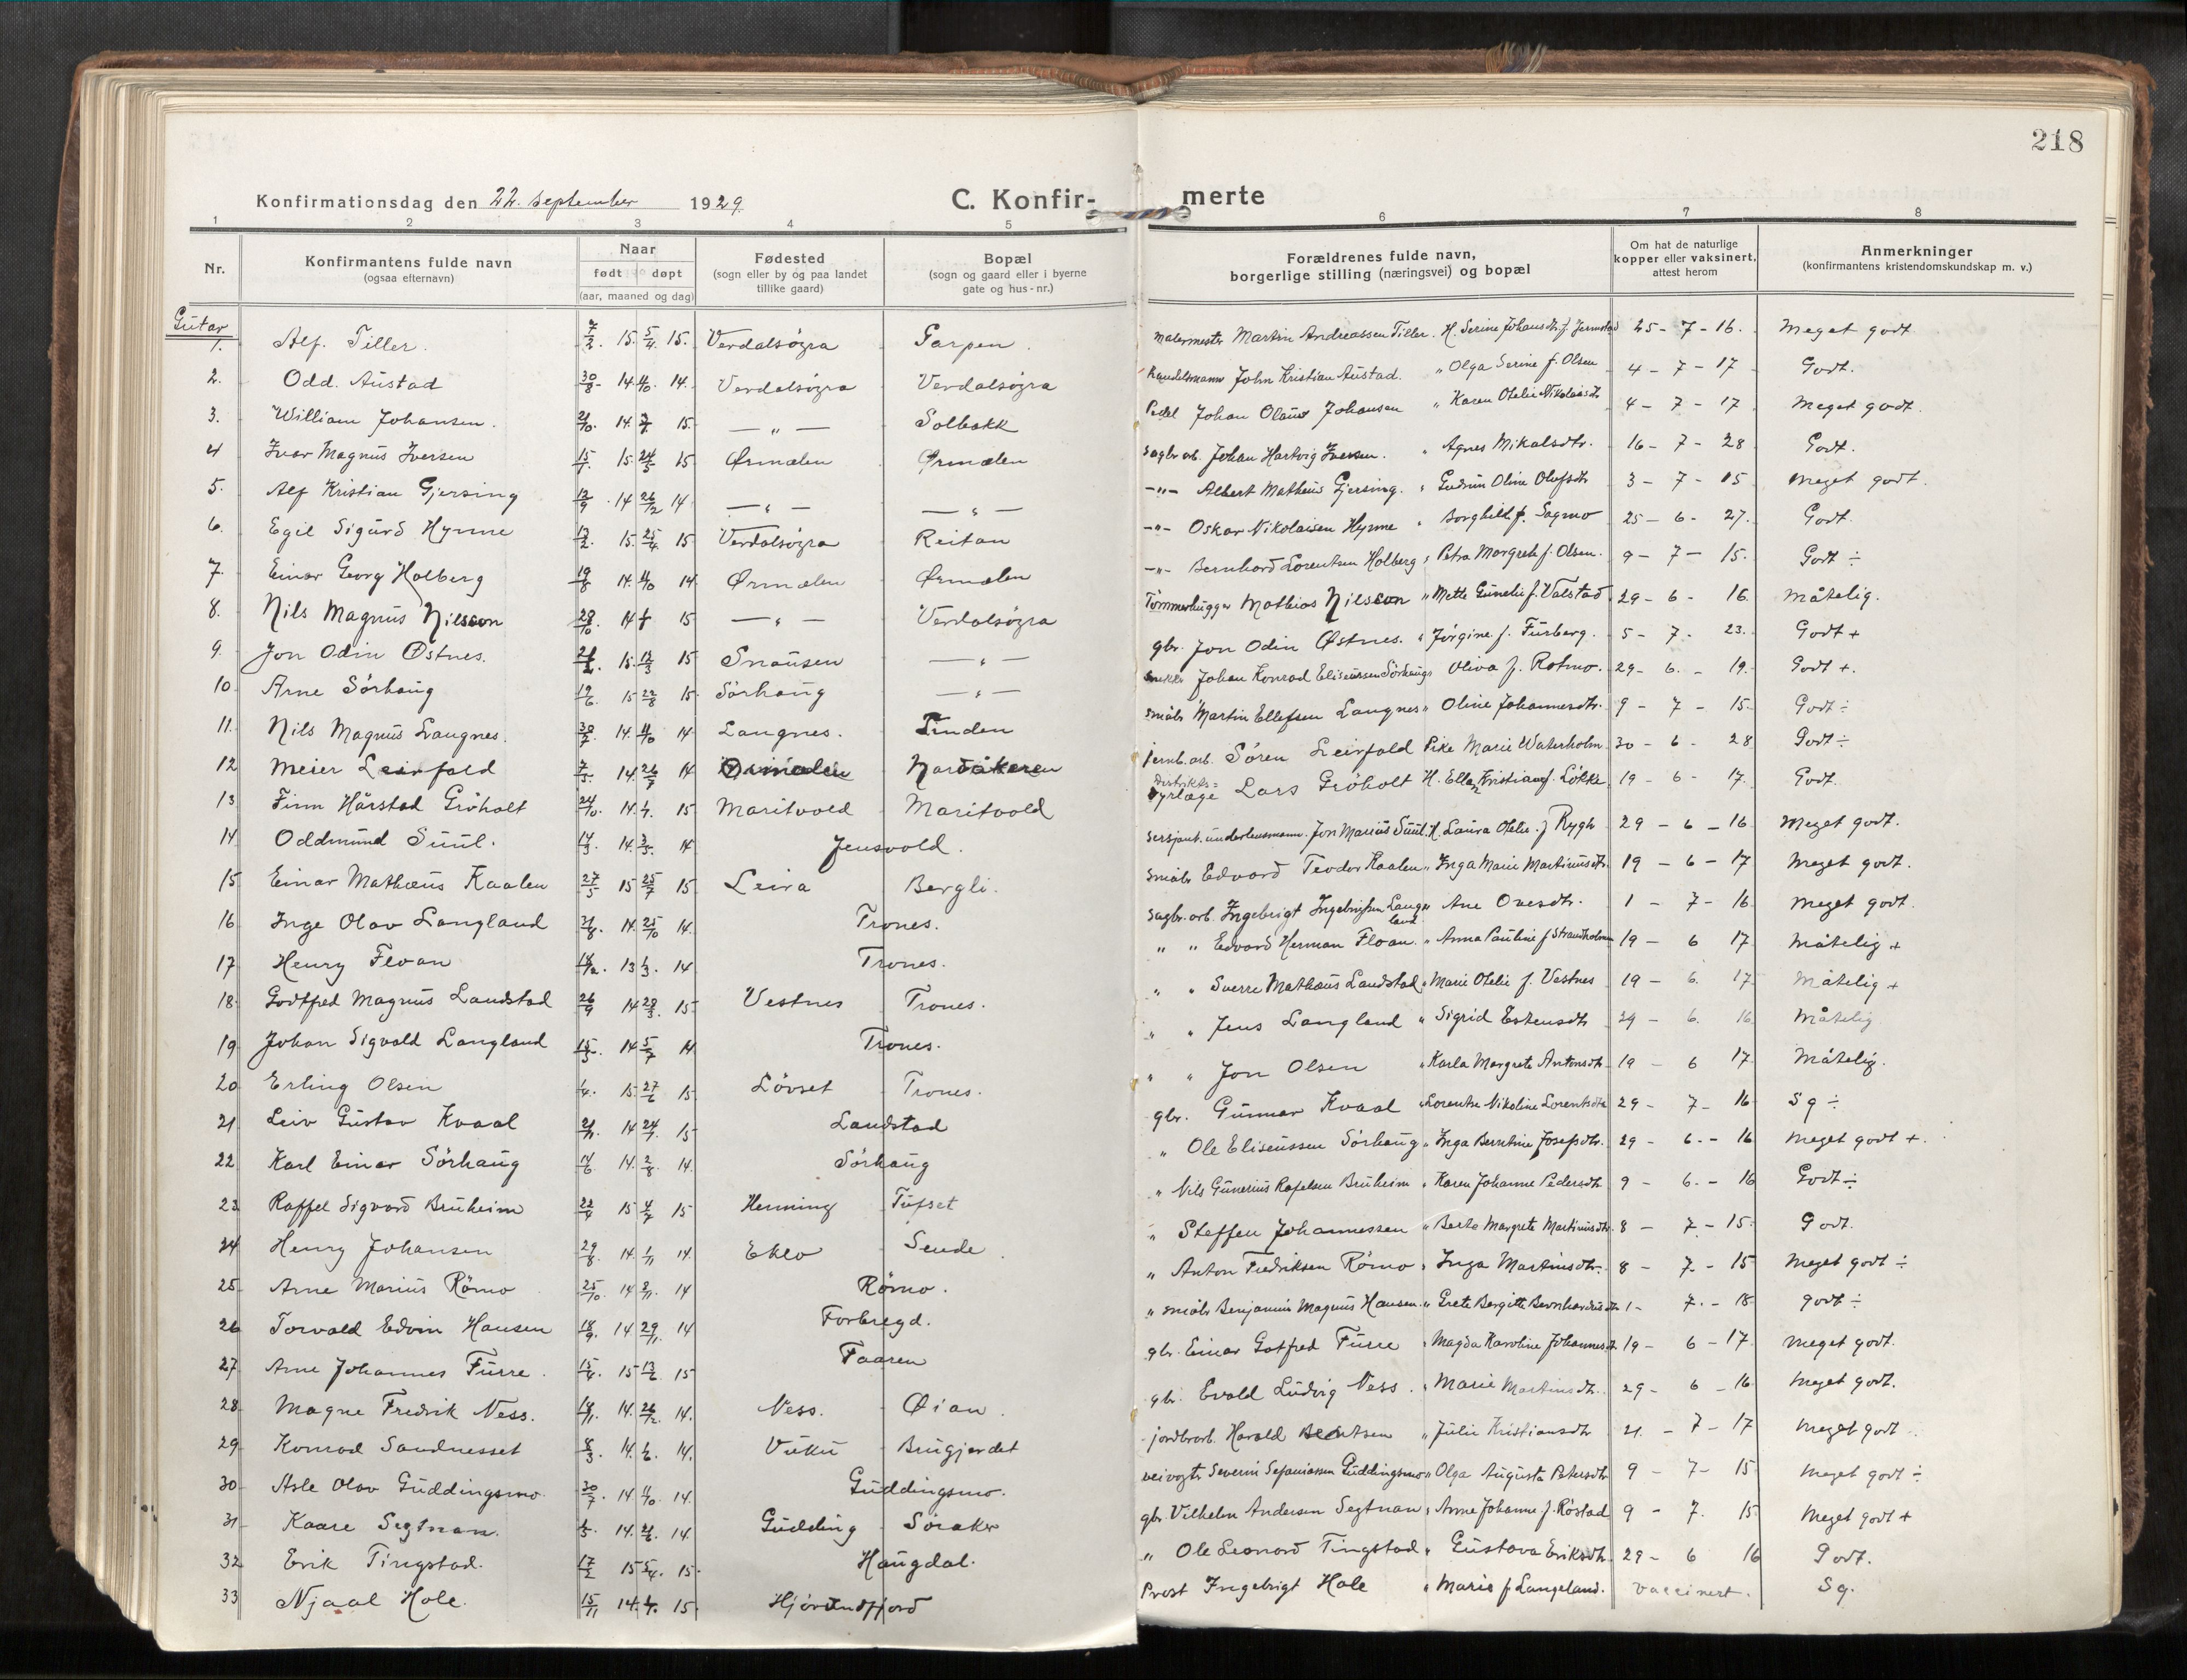 218
Konfirmationsdag den 22. september 1929.
C. Konfir- merte
1 2 3 4 5 6 7 8
Nr.
Konfirmantens fulde navn
(ogsaa efternavn)
Naar
født døpt
(aar, maaned og dag)
Fødested
(sogn eller by og paa landet
tillike gaard)
Bopæl
(sogn og gaard eller i byerne
gate og hus-nr.)
Forældrenes fulde navn,
borgerlige stilling (næringsvei) og bopæl
Om hat de naturlige
kopper eller vaksinert,
attest herom
Anmerkninger
(konfirmantens kristendomskundskap m. v.)
Gutar
1. Alf. Tiller. 15. 5/4 15. Verdalsøyra Garpen. Malermester Martin Andreassen Tiller. H. Serine Johansdtr. f. Jermstad 25 - 7 - 16. Meget godt
2. Odd. Austad 30/8 14 11/10. 14. Verdalsøyra Verdalsøyra Handelsmann John Kristian Austad. " Olga Serine f. Olsen 4 - 7 - 17 Godt.
3. William Johansen. 21/10. 14. 15. — " — Solbakk Pedel Johan Olaus Johansen " Karen Otelie Nikolaisdtr 4 - 7 - 17 Meget godt.
4 Ivar Magnus Iversen 15/1. 15. 24/5 15 Ørmælen Ørmælen sagbr. arb. Johan Hartvig Iversen. " Agnes Mikalsdtr. 16 - 7 - 28 Godt.
5. Alf Kristian Gjersing 12/9. 14 26/12 14 — " — — " — -"- Albert Matheus Gjersing. " Gudrun Oline Olufsdtr 3 - 7 - 15 Meget godt.
6. Egil Sigurd Hynne 13/2. 15. 25/4. 15 Verdalsøyra Reitan -"- Oskar Nikolaisen Hynne " Borghild f. Sagmo 25 - 6 - 27. Godt.
7. Einar Georg Holberg 19/8 14. 11/10 14 Ørmælen Ørmælen -"- Bernhard Lorentsen Holberg " Petra Margrete f. Olsen. 9 - 7 - 15. Godt ÷
8. Nils Magnus Nilsson 28/10. 14 15 — " — Verdalsøyra Tømmerhugger Mathias Nilsson " Mette Gunelie f. Valstad 29 - 6 - 16. Måtelig.
9. Jon Odin Østnes. 15. 13/3 15 Snausen — " — gbr. Jon Odin Østnes. " Jørgine f. Furberg. 5 - 7 - 23. Godt +
10. Arne Sørhaug 19/6 15 22/8 15. Sørhaug — " — Snekker Johan Konrad Eliseussen Sørhaug " Oliva f. Rotmo. 29 - 6. - 19. Godt +.
11. Nils Magnus Langnes. 30/7. 14. 11/10 14 Langnes. Tinden småbr Martin Ellefsen Langnes " Oline Johannesdtr. 9 - 7 - 15. Godt ÷
12 Meier Leirfald 14. 26/7 14 Ørmælen Nordåkeren jernb. arb. Søren Leirfald Pike Marie Waterholm 30 - 6 - 28 Godt ÷
13 Finn Hårstad Grøholt 24/10. 14. 15 Maritvold Maritvold distrikts= dyrlæge Lars Grøholt H. Ella Kristiane f. Løkke 19 - 6 - 17. Godt.
14 Oddmund Suul. 14/3. 14. 3/5. 14 Jensvold. sersjant. underlensmann. Jon Marius Suul. H. Laura Otelie. f Rygh 29 - 6 - 16 Meget godt.
15 Einar Mathæus Kaalen 27/5 15 25/7 15 Leira Bergli. småbr Edvard Teodor Kaalen " Inga Marie Martinusdtr. 19 - 6 - 17 Meget godt.
16 Inge Olav Langland 31/8. 14. 25/10 14. Trones. sagbr. arb. Ingebrigt Ingebrigtsen Langland " Ane Ovesdtr. 1 - 7 - 16. Meget godt.
17 Henry Floan 18/12. 13 14 Trones. " " Edvard Herman Floan. " Anna Pauline f Strandholmen 19 - 6 17 Måtelig +
18. Godtfred Magnus Landstad 26/9 14 28/3. 15. Vestnes Trones. " " Sverre Mathæus Landstad " Marie Otelie f. Vestnes 19 - 6. 17 Måtelig +
19 Johan Sigvald Langland 15/5. 14 5/7 14 Trones. " " Jens Langland " Sigrid Estensdtr 29 - 6. 16 Måtelig
20 Erling Olsen 15. 27/6 15 Løvset Trones. " " Jon Olsen " Karla Margrete Antonsdtr 19 - 6 17 Måtelig.
21 Leiv Gustav Kvaal 21/11. 14 24/1. 15 Landstad gbr. Gunnar Kvaal " Lorentse Nikoline Lorentsdtr 29 - 7 - 16 Sg ÷
22 Karl Einar Sørhaug 14/6 14. 2/8. 14. Sørhaug " Ole Eliseussen Sørhaug " Inga Berntine Josefsdtr. 29 - 6. - 16 Meget godt +.
23 Raffel Sigvard Bruheim 22/4 15 4/7 15 Henning Tufset " Nils Gunerius Rafelsen Bruheim " Karen Johanne Pedersdtr 9 - 6. - 16 Godt ÷
24 Henry Johansen 29/8. 14. 1/11 14. Eklo Sende " Steffen Johannessen " Berte Margrete Martinusdtr. 8 - 7 - 15. Godt.
25 Arne Marius Rømo 25/10. 14 8/11. 14 Rømo. " Anton Fredriksen Rømo " Inga Martinsdtr. 8 - 7 - 15 Meget godt ÷
26 Torvald Edvin Hansen 18/9. 14 29/11. 14 Forbregd. " småbr Benjamin Magnus Hansen. " Grete Bergitte Bernhardusdtr 1 - 7. - 18 godt ÷
27 Arne Johannes Furre. 15/4. 15 13/6 15 Faaren gbr. Einar Gotfred Furre " Magda Karoline Johannesdtr 19 - 6 - 17 Meget godt.
28 Magne Fredrik Ness. 18/11. 14. 26/12. 14. Ness. Øian. gbr. Evald Ludvig Ness. " Marie Martinsdtr. 29 - 6 - 16 Meget godt.
29 Konrad Sandnesset 8/3. 14. 14. Vuku Brugjerdet jordbrarb. Harald Berntsen " Julie Kristiansdtr 21. - 7 - 17 Meget godt.
30 Asle Olav Guddingsmo 30/7. 14. 11/10. 14. Guddingsmo. veivogter Severin Sefaniassen Guddingsmo " Olga Augusta Petersdtr 9 - 7 - 15 Meget godt ÷
31 Kaare Segtnan. 14. 21/6. 14. Gudding Søraker gbr. Vilhelm Andersen Segtnan " Anne Johanne f. Røstad 9 - 7. 15 Meget godt +
32 Erik Tingstad. 17/2 15 5/4. 15. Haugdal. " Ole Leonard Tingstad " Gustava Eriksdtr. 29 - 6 16 Godt.
33 Njaal Hole. 15/11 14. 15. Hjørundfjord Prost Ingebrigt Hole " Marie f Langeland. vaccinert. Sg.